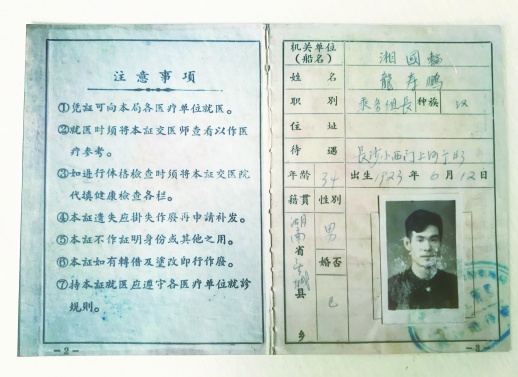 注意事項
①凭証可向本局各医疗单位就医。
②就医时须将本証交医师查看以作医
疗参考。
③如进行体格檢查时须将本証交医院
代填健康檢查各栏。
④本証遺失应掛失作廢再申請补发。
⑤本証不作証明身份或其他之用。
⑥本証如有轉借及塗改即行作廢。
⑦持本証就医应遵守各医疗单位就診
規则。
—2—
机关单位
(船名) 湘國
姓名 龍寿鵬
职别 組長 种族 汉
住址
待遇 長沙小西门上河
年龄 34 出生 1923 年 6 月 12 日
籍貫 湖南省县乡
性别 男
婚否 已
—3—